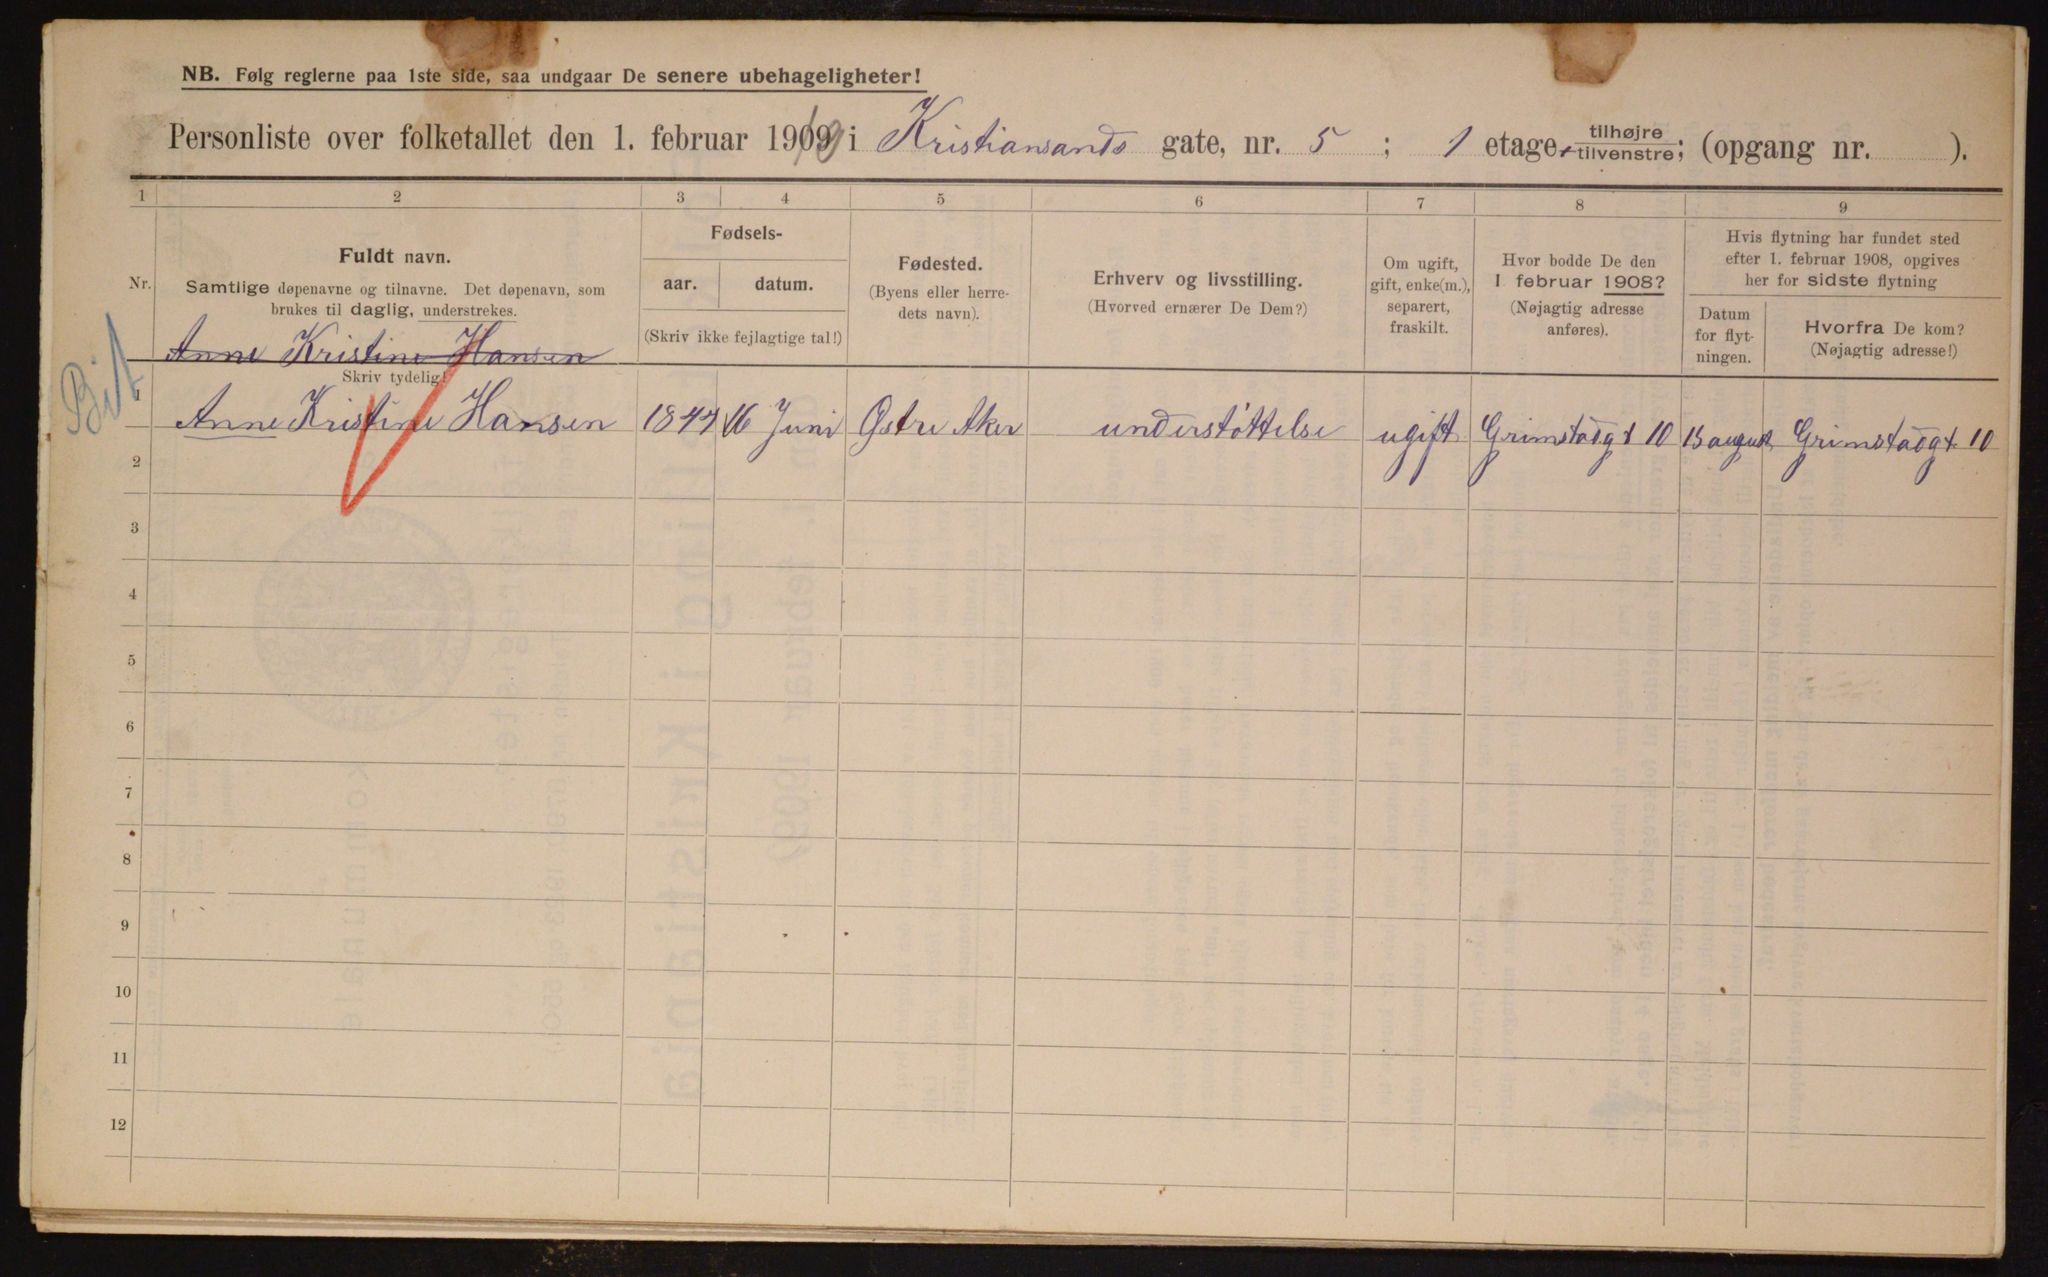 NB. Følg reglerne paa 1ste side, saa undgaar De senere ubehageligheter!
Personliste over folketallet den 1. februar 1909 i Kristiansands gate, nr. 5 ; 1 etage, tilhøjre tilvenstre; (opgang nr. ).
1 2 3 4 5 6 7 8 9
Nr.
Fuldt navn.
Samtlige døpenavne og tilnavne. Det døpenavn, som
brukes til daglig, understrekes.
Skriv tydelig!
Fødsels-
aar. datum.
(Skriv ikke fejlagtige tal!)
Fødested.
(Byens eller herre-
dets navn).
Erhverv og livsstilling.
(Hvorved ernærer De Dem?)
Om ugift,
gift, enke(m.),
separert,
fraskilt.
Hvor bodde De den
1 februar 1908?
(Nøjagtig adresse
anføres).
Hvis flytning har fundet sted
efter 1. februar 1908, opgives
her for sidste flytning
Datum
for flyt-
ningen.
Hvorfra De kom?
(Nøjagtig adresse!)
Anne Kristine Hansen
1 Anne Kristine Hansen 1844 16 Juni Østre Aker understøttelse ugift Grimstadgt 10 15 august Grimstadgt. 10
2
3
4
5
6
7
8
9
10
11
12